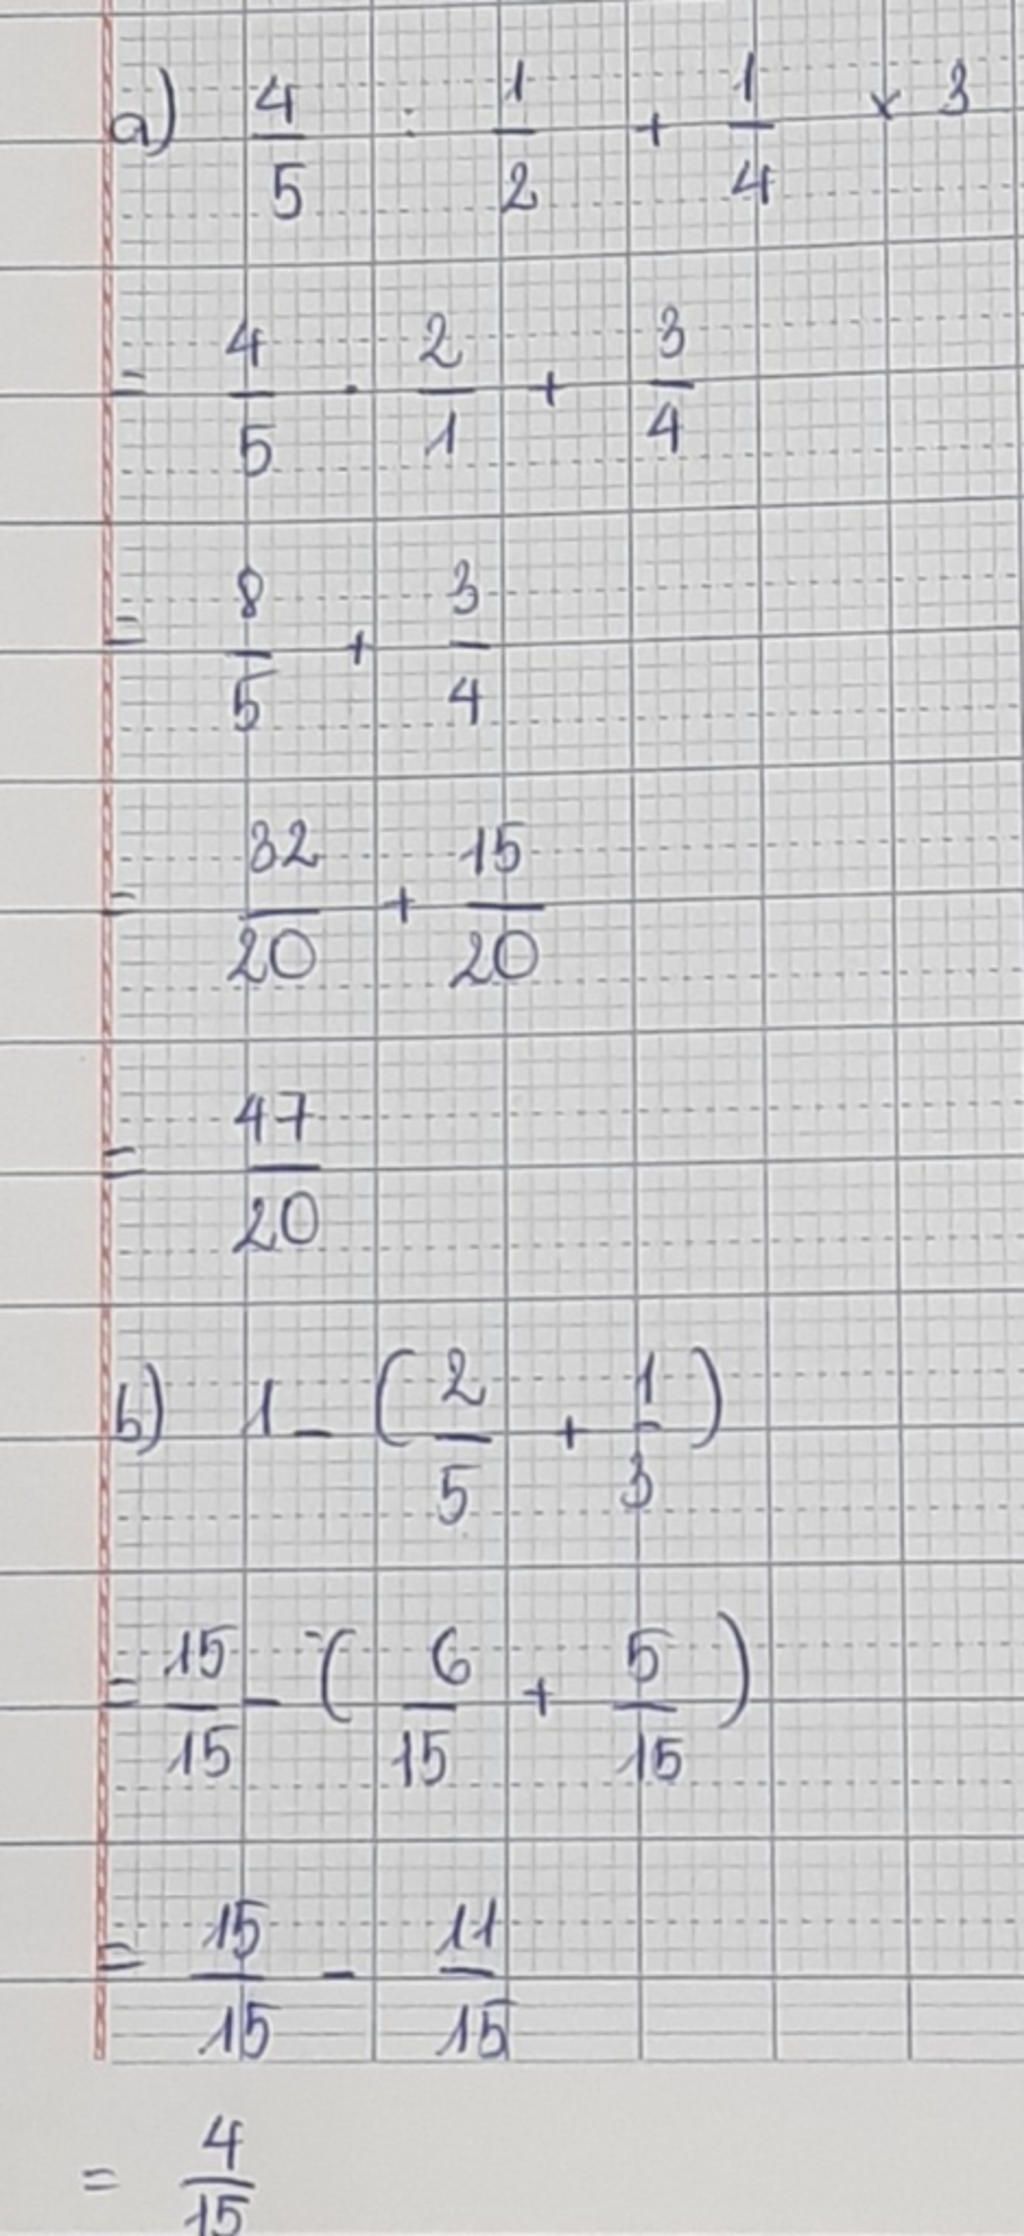 a) 4/5 : 1/2 + 1/4 × 3
= 4/5 . 2/1 + 3/4
= 8/5 + 3/4
= 32/20 + 15/20
= 47/20
b) 1 - (2/5 + 1/3)
= 15/15 - (6/15 + 5/15)
= 15/15 - 11/15
= 4/15